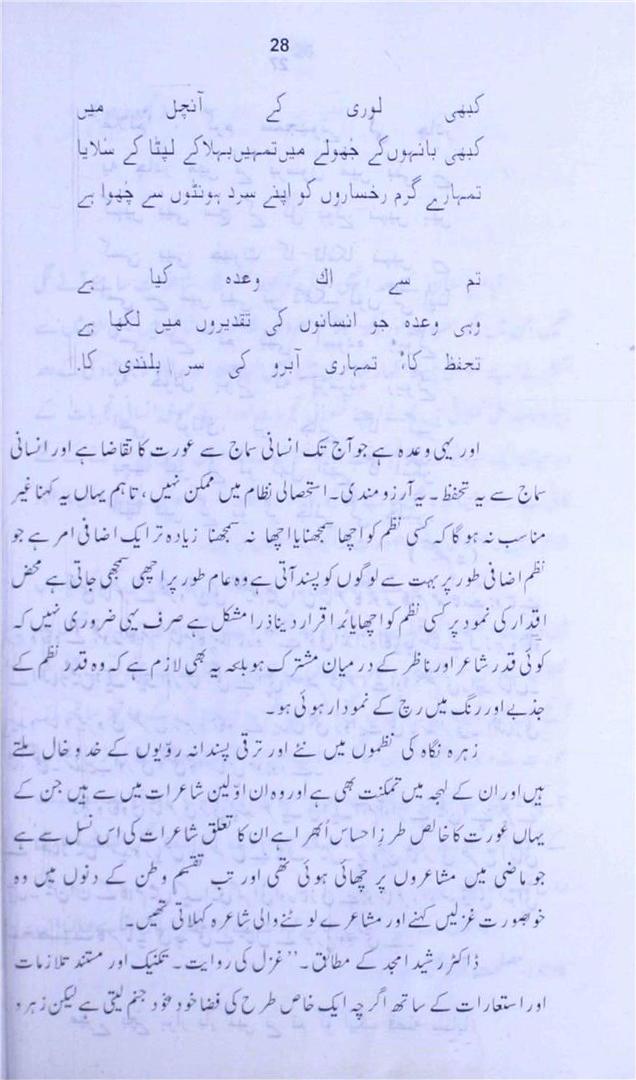 28
کبھی لوری کے آنچل میں
کبھی بانہوں کے جُھولے میں تمہیں بہلا کے لپٹا کے سُلایا
تمہارے گرم رخساروں کو اپنے سرد ہونٹوں سے چُھوا ہے
تم سے اک وعدہ کیا ہے
وہی وعدہ جو انسانوں کی تقدیروں میں لکھا ہے
تحفظ کا، تمہاری آبرو کی سر بلندی کا۔
اور یہی وعدہ ہے جو آج تک انسانی سماج سے عورت کا تقاضا ہے اور انسانی
سماج سے یہ تحفظ۔ یہ آرزو مندی۔ استحصالی نظام میں ممکن نہیں، تاہم یہاں یہ کہنا غیر
مناسب نہ ہوگا کہ کسی نظم کو اچھا سمجھنا یا اچھا نہ سمجھنا زیادہ تر ایک اضافی امر ہے جو
نظم اضافی طور پر بہت سے لوگوں کو پسند آتی ہے وہ عام طور پر اچھی سمجھی جاتی ہے محض
اقدار کی نمود پر کسی نظم کو اچھا یا بُرا قرار دینا ذرا مشکل ہے صرف یہی ضروری نہیں کہ
کوئی قدر شاعر اور ناظر کے درمیان مشترک ہو بلکہ یہ بھی لازم ہے کہ وہ قدر نظم کے
جذبے اور رنگ میں رچ کے نمودار ہوئی ہو۔
زہرہ نگاہ کی نظموں میں نئے اور ترقی پسندانہ رویّوں کے خدوخال ملتے
ہیں اور ان کے لہجہ میں تمکنت بھی ہے اور وہ ان اوّلین شاعرات میں سے ہیں جن کے
یہاں عورت کا خالص طرزِ احساس اُبھرا ہے ان کا تعلق شاعرات کی اس نسل سے ہے
جو ماضی میں مشاعروں پر چھائی ہوئی تھی اور تب تقسیم وطن کے دنوں میں وہ
خوبصورت غزلیں کہنے اور مشاعرے لوٹنے والی شاعرہ کہلاتی تھیں۔
ڈاکٹر رشید امجد کے مطابق۔ ’’غزل کی روایت۔ تکنیک اور مستند تلازمات
اور استعارات کے ساتھ اگرچہ ایک خاص طرح کی فضا خود بخود جنم لیتی ہے لیکن زہرہ